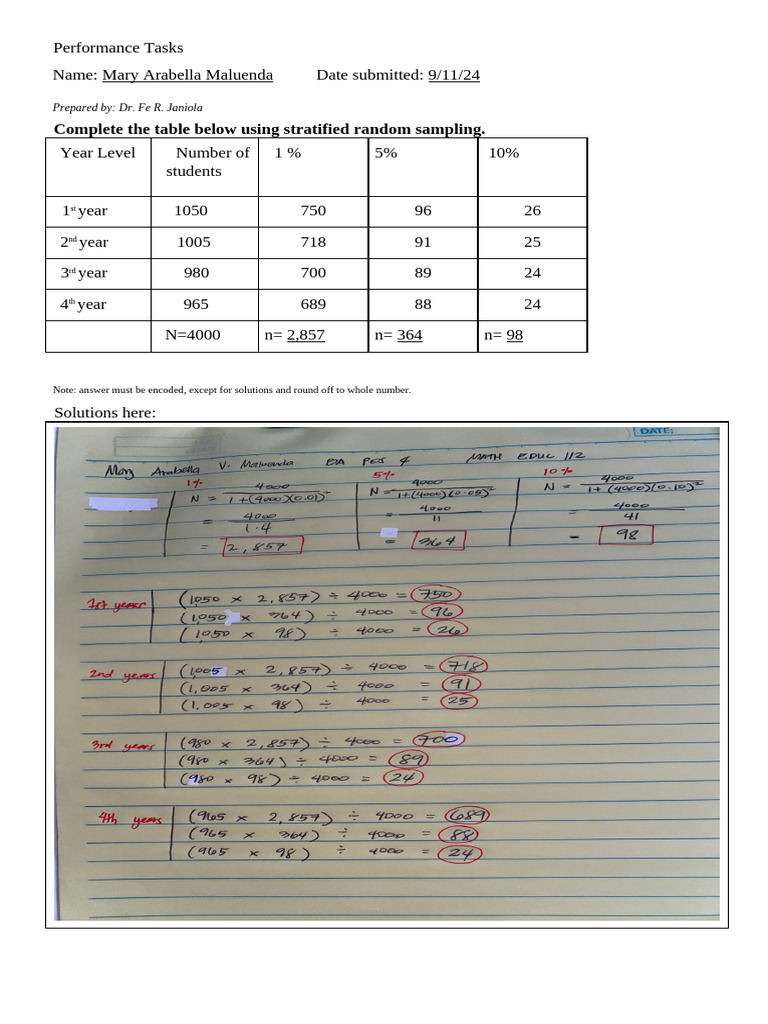 Performance Tasks
Name: Mary Arabella Maluenda Date submitted: 9/11/24
Prepared by: Dr. Fe R. Janiola
Complete the table below using stratified random sampling.
Year Level Number of students 1 % 5% 10%
1st year 1050 750 96 26
2nd year 1005 718 91 25
3rd year 980 700 89 24
4th year 965 689 88 24
N=4000 n= 2,857 n= 364 n= 98
Note: answer must be encoded, except for solutions and round off to whole number.
Solutions here:
DATE:
Mary Arabella V. Maluenda MATH EDUC 112
1% 5% 10%
N = 4000 / 1+(4000)(0.01)² N = 4000 / 1+(4000)(0.05)² N = 4000 / 1+(4000)(0.10)²
= 4000 / 1.4 = 4000 / 11 = 4000 / 41
= 2,857 = 364 = 98
1st years (1,050 x 2,857) ÷ 4000 = 750
(1,050 x 364) ÷ 4000 = 96
(1,050 x 98) ÷ 4000 = 26
2nd years (1,005 x 2,857) ÷ 4000 = 718
(1,005 x 364) ÷ 4000 = 91
(1,005 x 98) ÷ 4000 = 25
3rd years (980 x 2,857) ÷ 4000 = 700
(980 x 364) ÷ 4000 = 89
(980 x 98) ÷ 4000 = 24
4th years (965 x 2,857) ÷ 4000 = 689
(965 x 364) ÷ 4000 = 88
(965 x 98) ÷ 4000 = 24